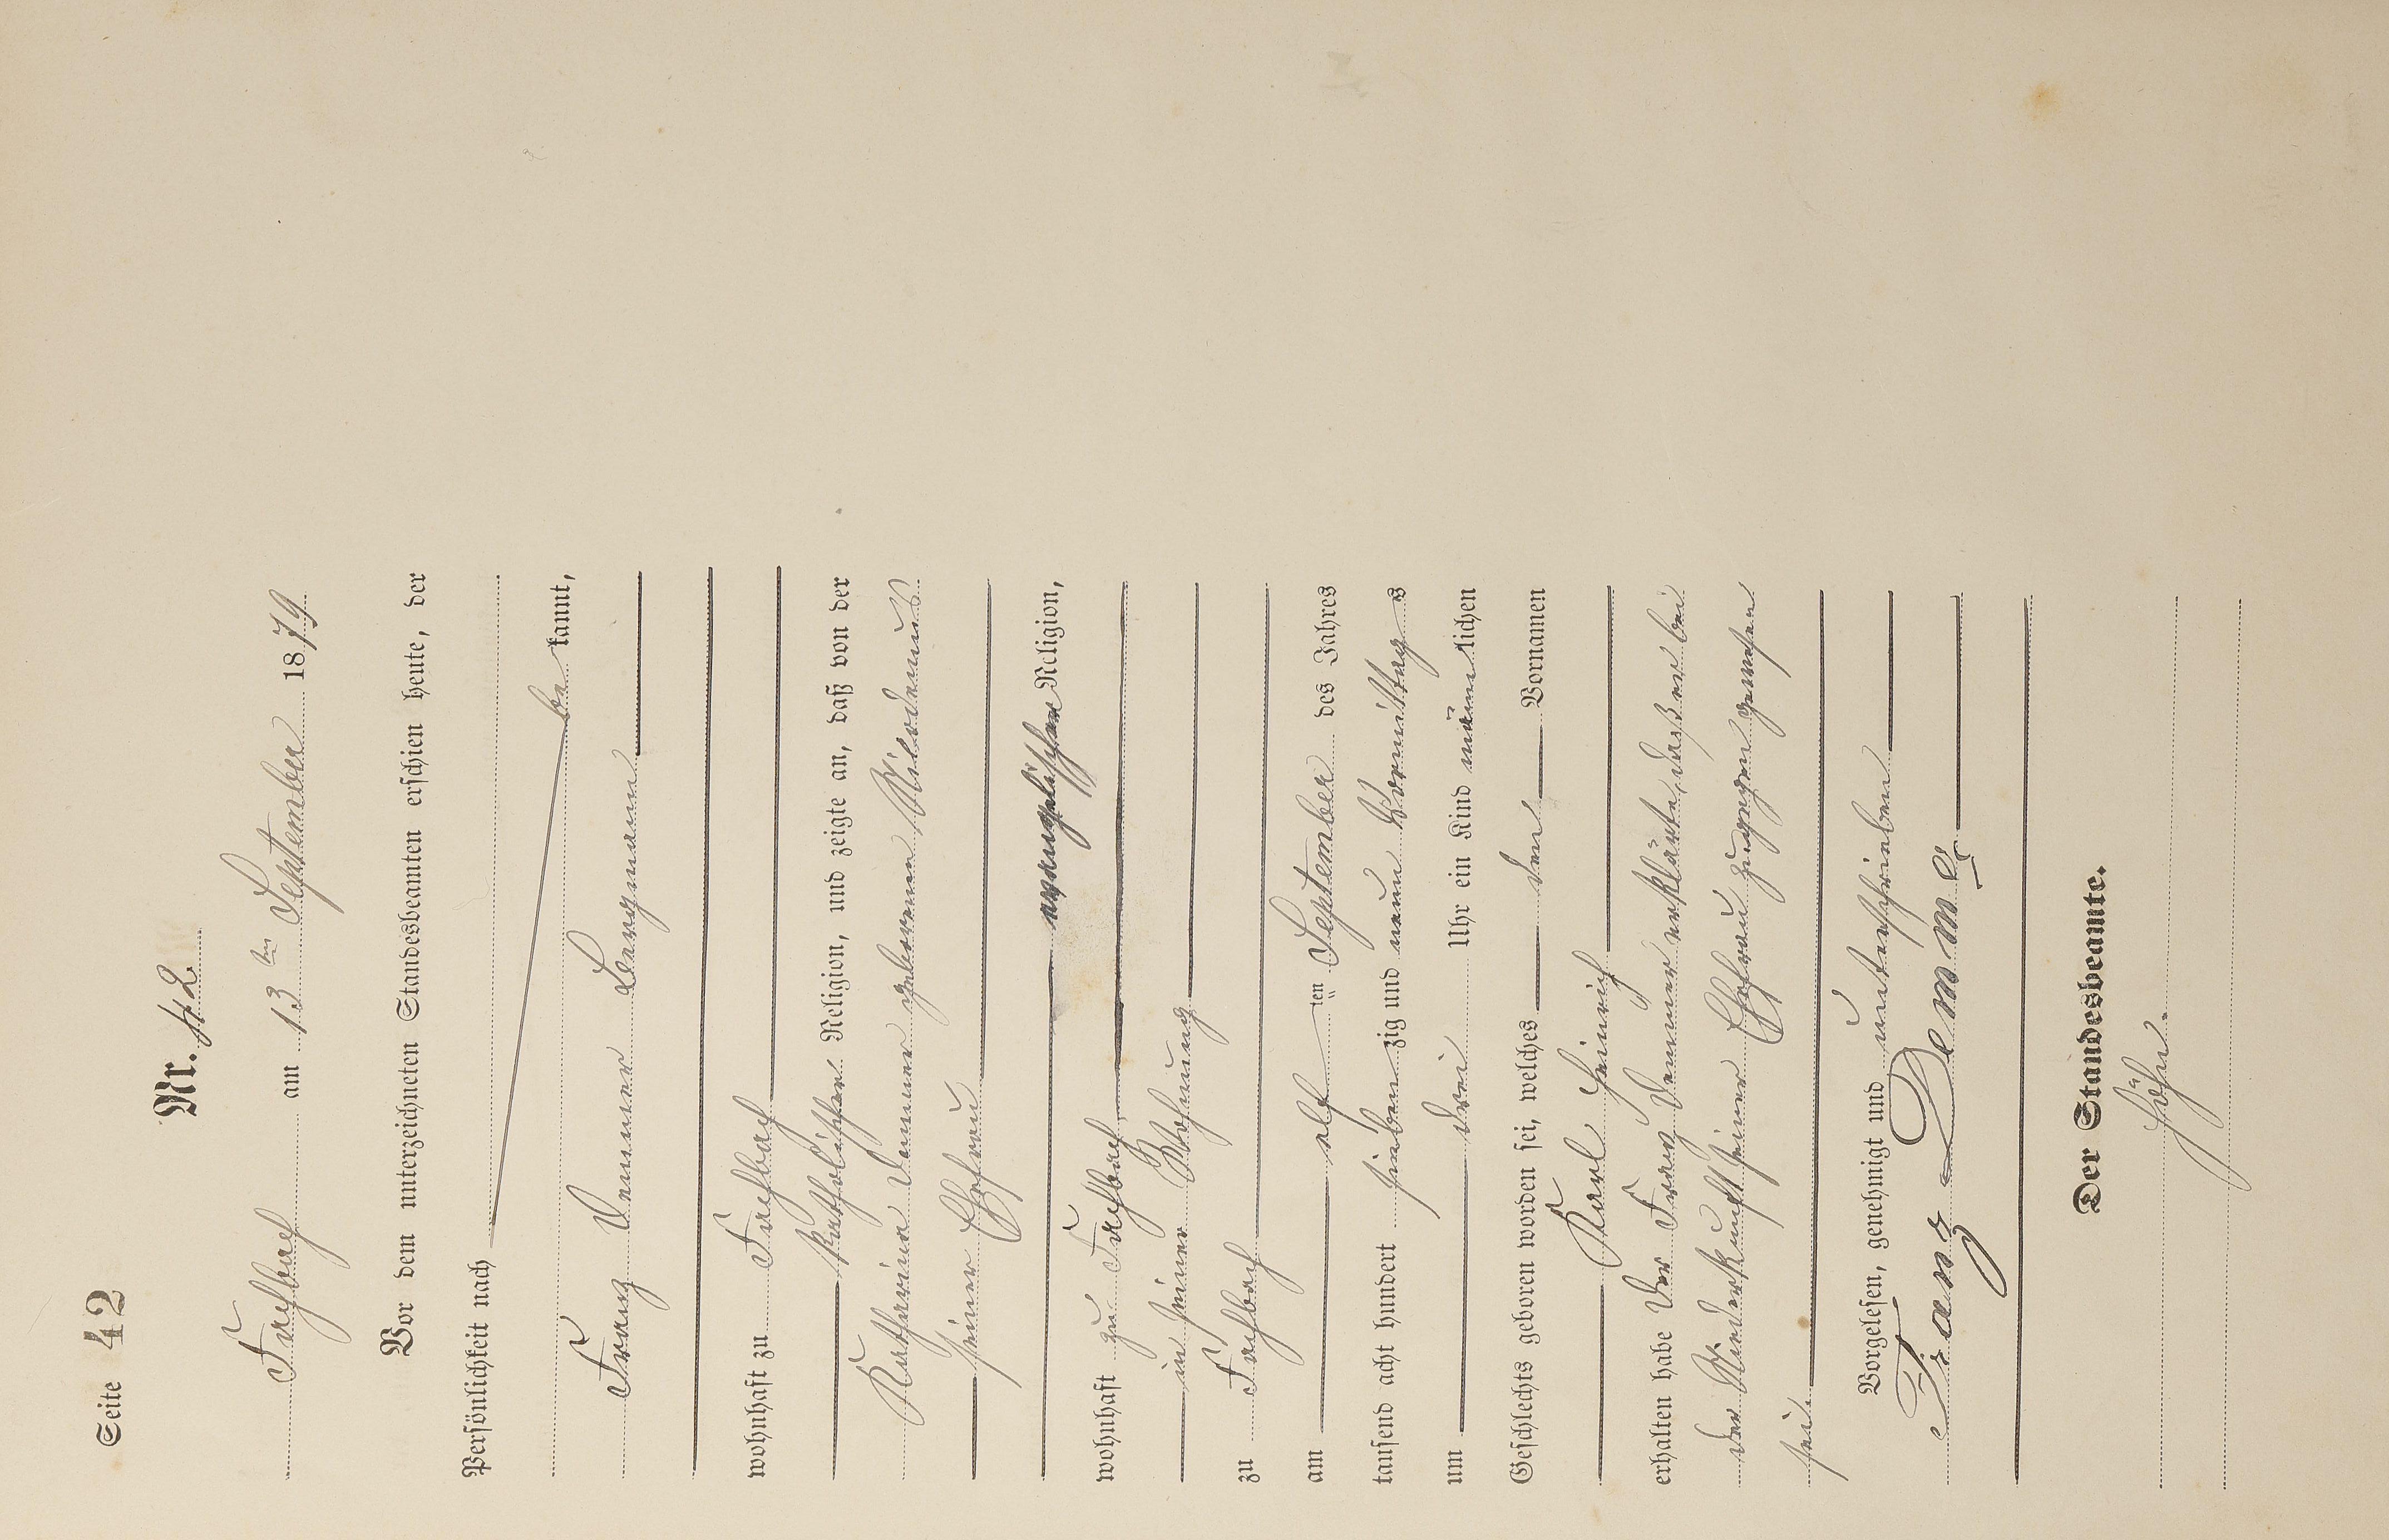 Seite 42
Nr. 42
Fachbach am 13ten September 1879
Vor dem unterzeichneten Standesbeamten erschien heute, der
Persönlichkeit nach
be kannt,
Franz Demmer Bergmann
wohnhaft zu Fachbach
katholischer Religion, und zeigte an, daß von der
Katharina Demmer geborenen
seiner Ehefrau
evangelischer Religion,
wohnhaft zu Fachbach
in seiner Wohnung
zu Fachbach
am elf ten September des Jahres
tausend acht hundert sieben zig und neun Vormittag s
um drei Uhr ein Kind männ lichen
Geschlechts geboren worden sei, welches den Vornamen
Karl Heinrich
erhalten habe Der Franz Demmer erklärte, daß er bei
der Niederkunft seiner Ehefrau zugegen gewesen
sei.
Vorgelesen, genehmigt und unterschrieben
Franz Demmer
Der Standesbeamte.
Höhn.